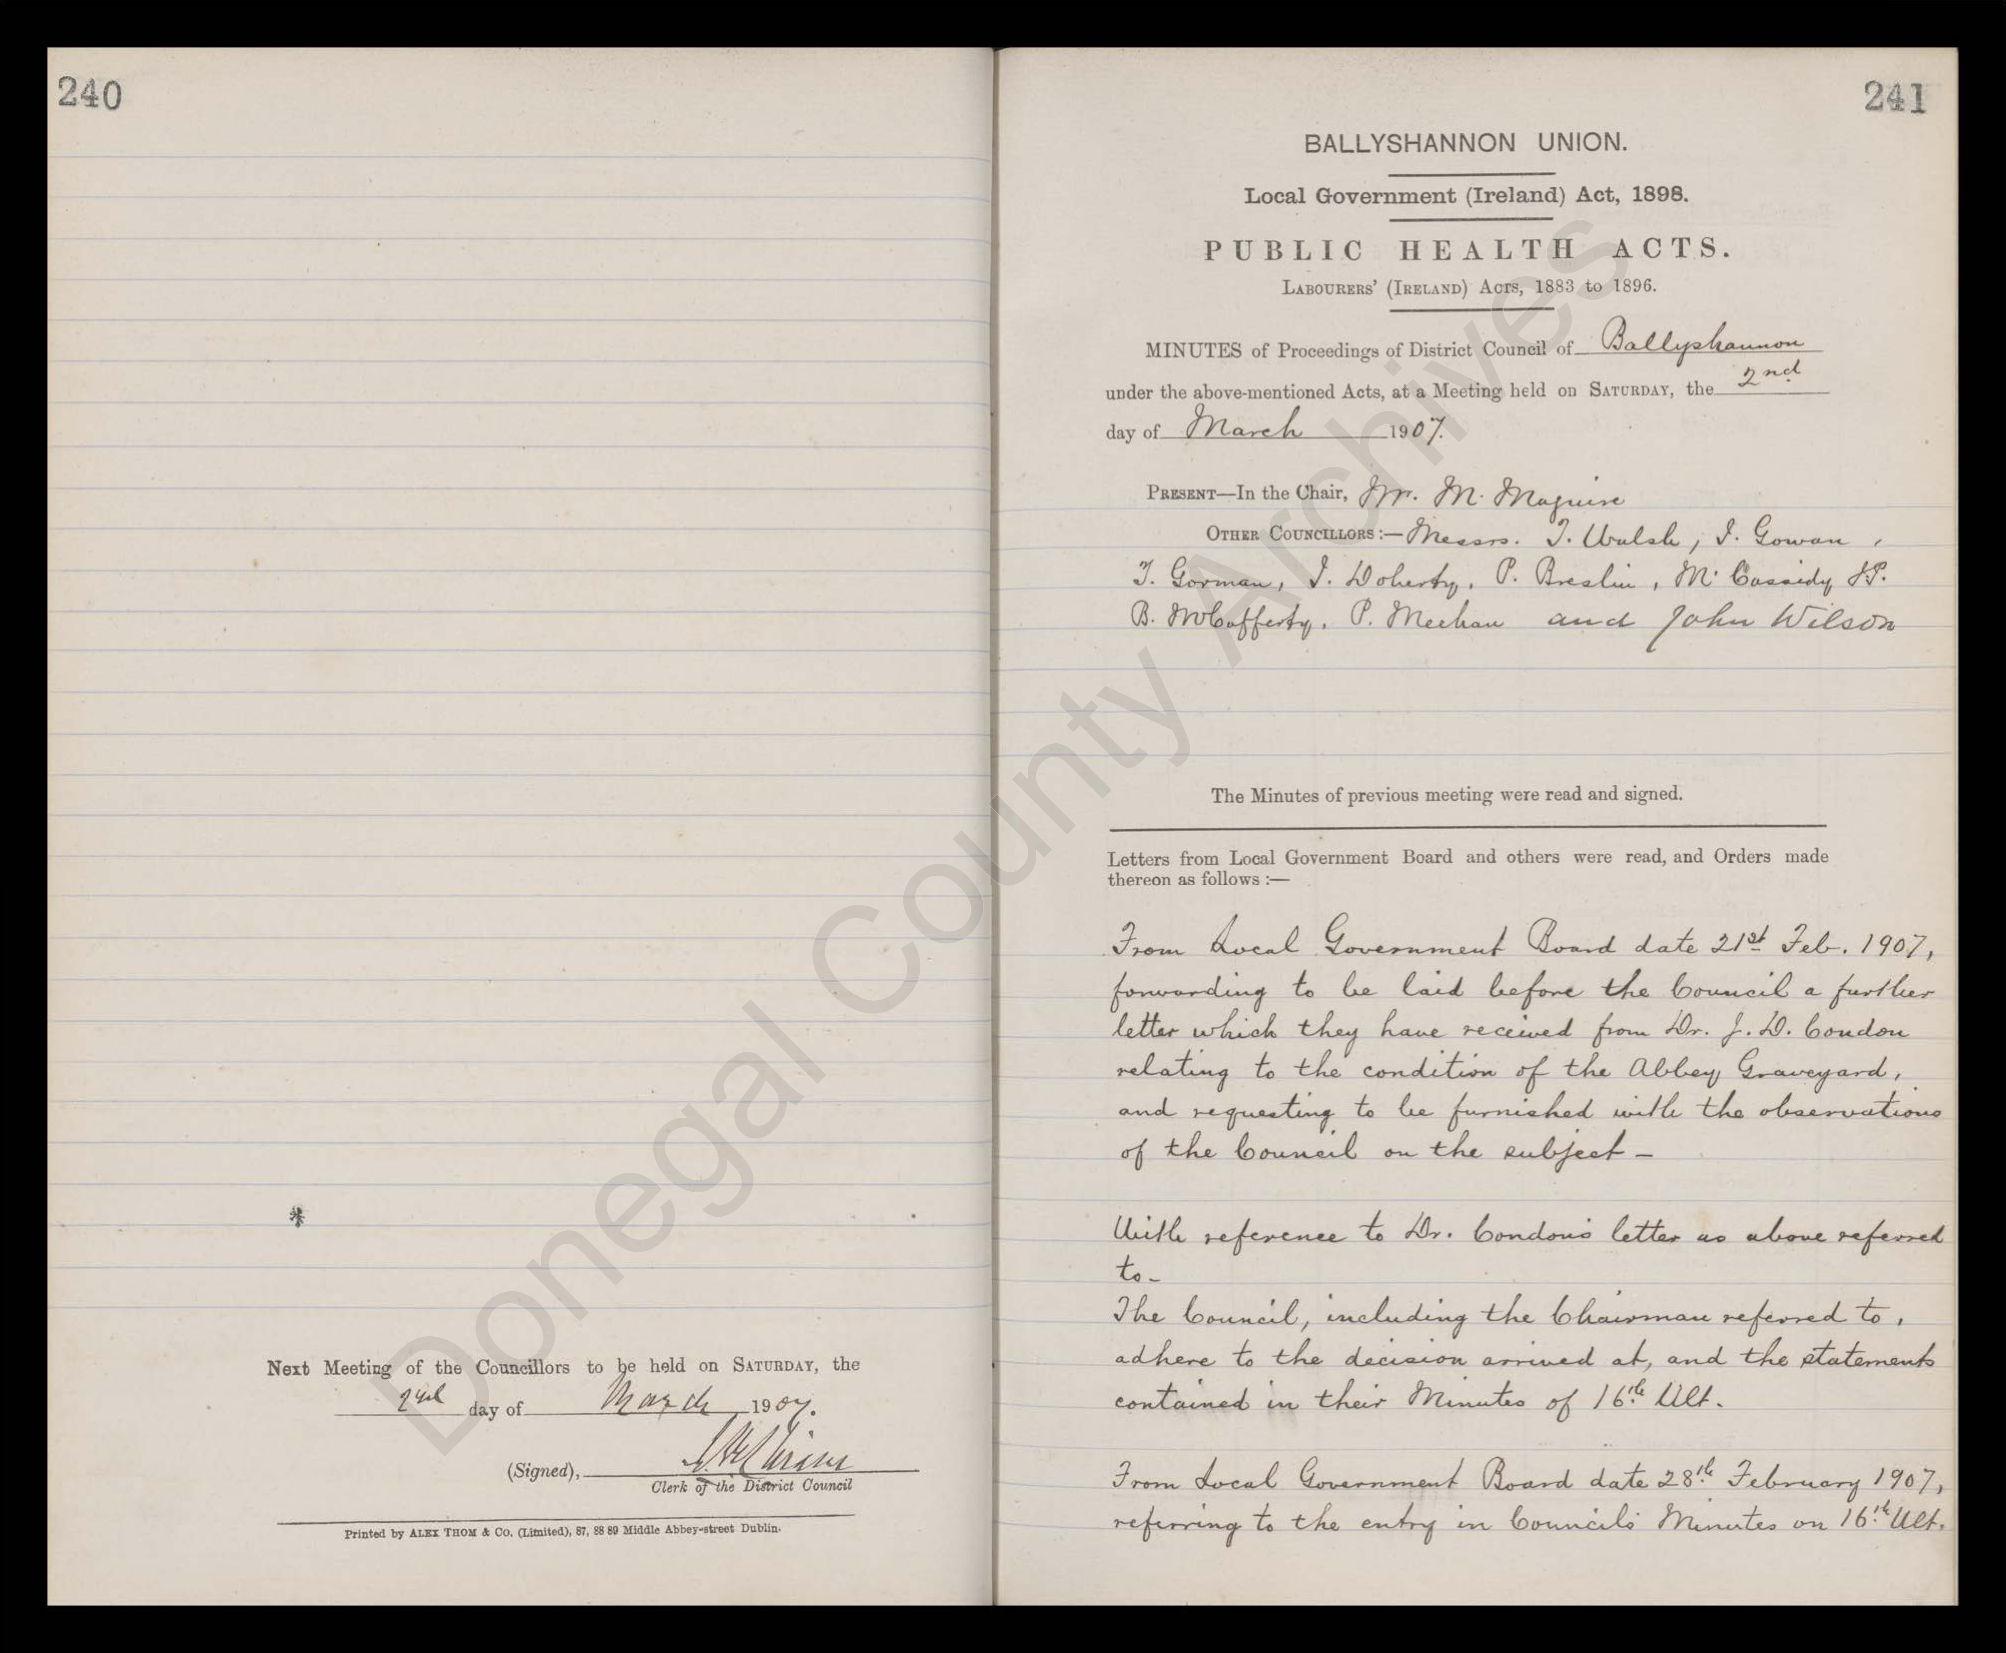 240
Next Meeting of the Councillors to be held on SATURDAY, the
2nd day of March 1907.
(Signed),
Clerk of the District Council
Printed by ALEX THOM & CO. (Limited), 87, 88 89 Middle Abbey-street Dublin.
241
BALLYSHANNON UNION.
Local Government (Ireland) Act, 1898.
PUBLIC HEALTH ACTS.
LABOURERS' (IRELAND) ACTS, 1883 to 1896.
MINUTES of Proceedings of District Council of Ballyshannon
under the above-mentioned Acts, at a Meeting held on SATURDAY, the 2nd
day of March 1907.
PRESENT—In the Chair, Mr. M. Maguire
OTHER COUNCILLORS:— Messrs. T. Walsh, J. Gowan,
T. Gorman, J. Doherty, P. Breslin, M. Cassidy J.P.
B. McCafferty, P. Meehan and John Wilson
The Minutes of previous meeting were read and signed.
Letters from Local Government Board and others were read, and Orders made
thereon as follows:—
From Local Government Board date 21st Feb. 1907,
forwarding to be laid before the Council a further
letter which they have received from Dr. J. D. Condon
relating to the condition of the Abbey Graveyard,
and requesting to be furnished with the observations
of the Council on the subject –
With reference to Dr. Condon's letter as above referred
to –
The Council, including the Chairman referred to,
adhere to the decision arrived at, and the statements
contained in their Minutes of 16th Ult.
From Local Government Board date 28th February 1907,
referring to the entry in Council's Minutes on 16th Ult.
Donegal County Archives